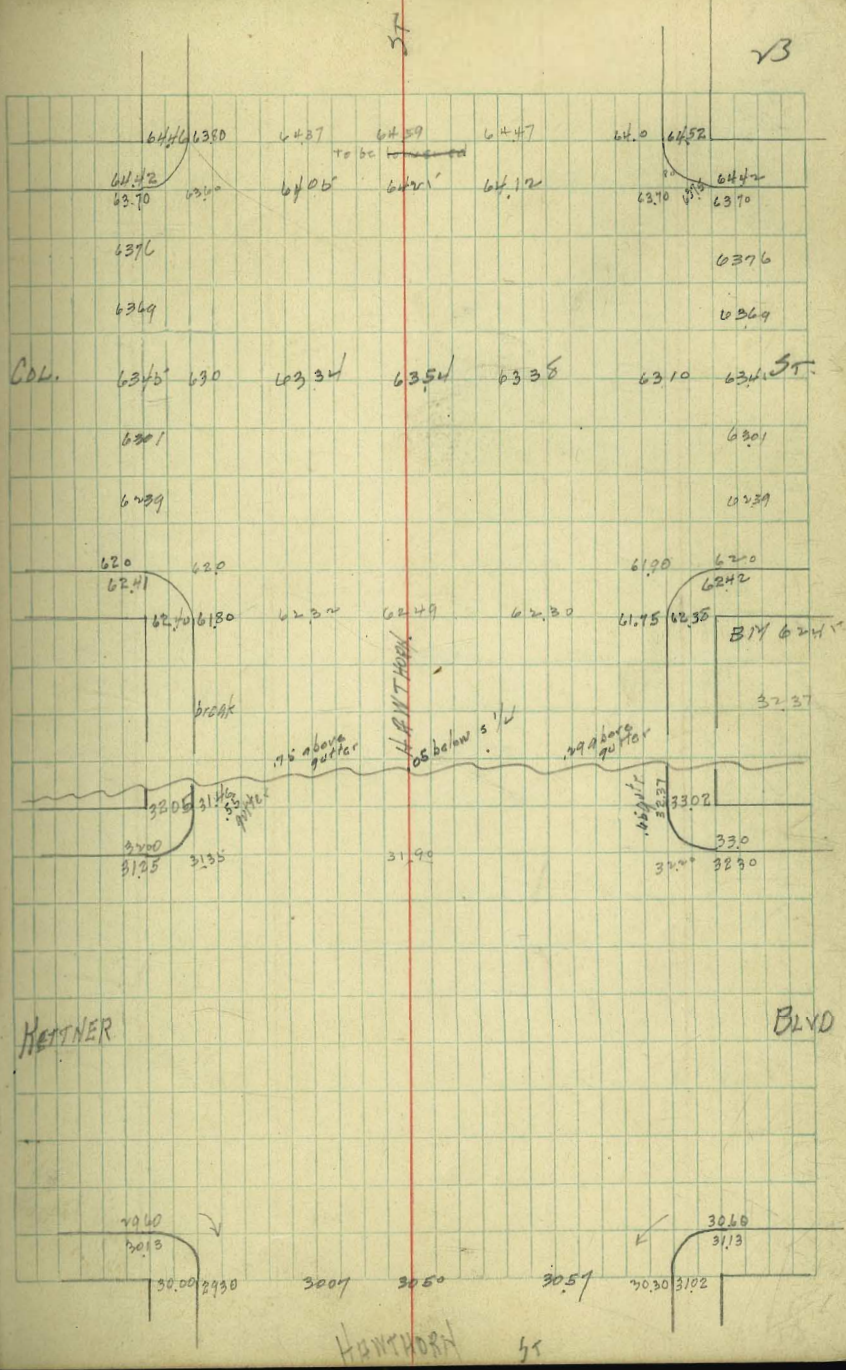 ST 23
64.46 63.80 64.37 64.59 64.47 64.0 64.52
to be
64.42 63.60 64.05 64.21 64.12 64.42
63.70 63.70 63.70
63.76 63.76
63.69 63.69
COL. 63.45 63.0 63.34 63.54 63.38 63.10 63.4 ST.
63.01 63.01
62.39 62.39
62.0 62.0 61.90 62.0
62.41 62.42
62.40 61.80 62.32 62.49 62.30 61.75 62.38
BM 62.45
32.37
break HAWTHORN
.75 above gutter .05 below S 1/4 .29 above gutter
32.05 31.46 .55 gutter .65 gut'r 32.37 33.02
32.00 33.0
31.25 31.35 31.90 32.30
KETTNER BLVD
29.60 30.60
30.13 31.13
30.00 29.30 30.07 30.50 30.57 30.30 31.02
HAWTHORN ST